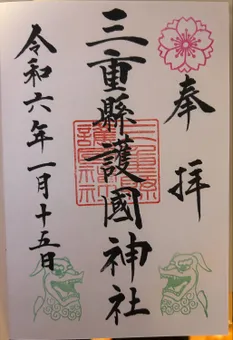 奉拝
三重縣護國神社
令和六年一月十五日